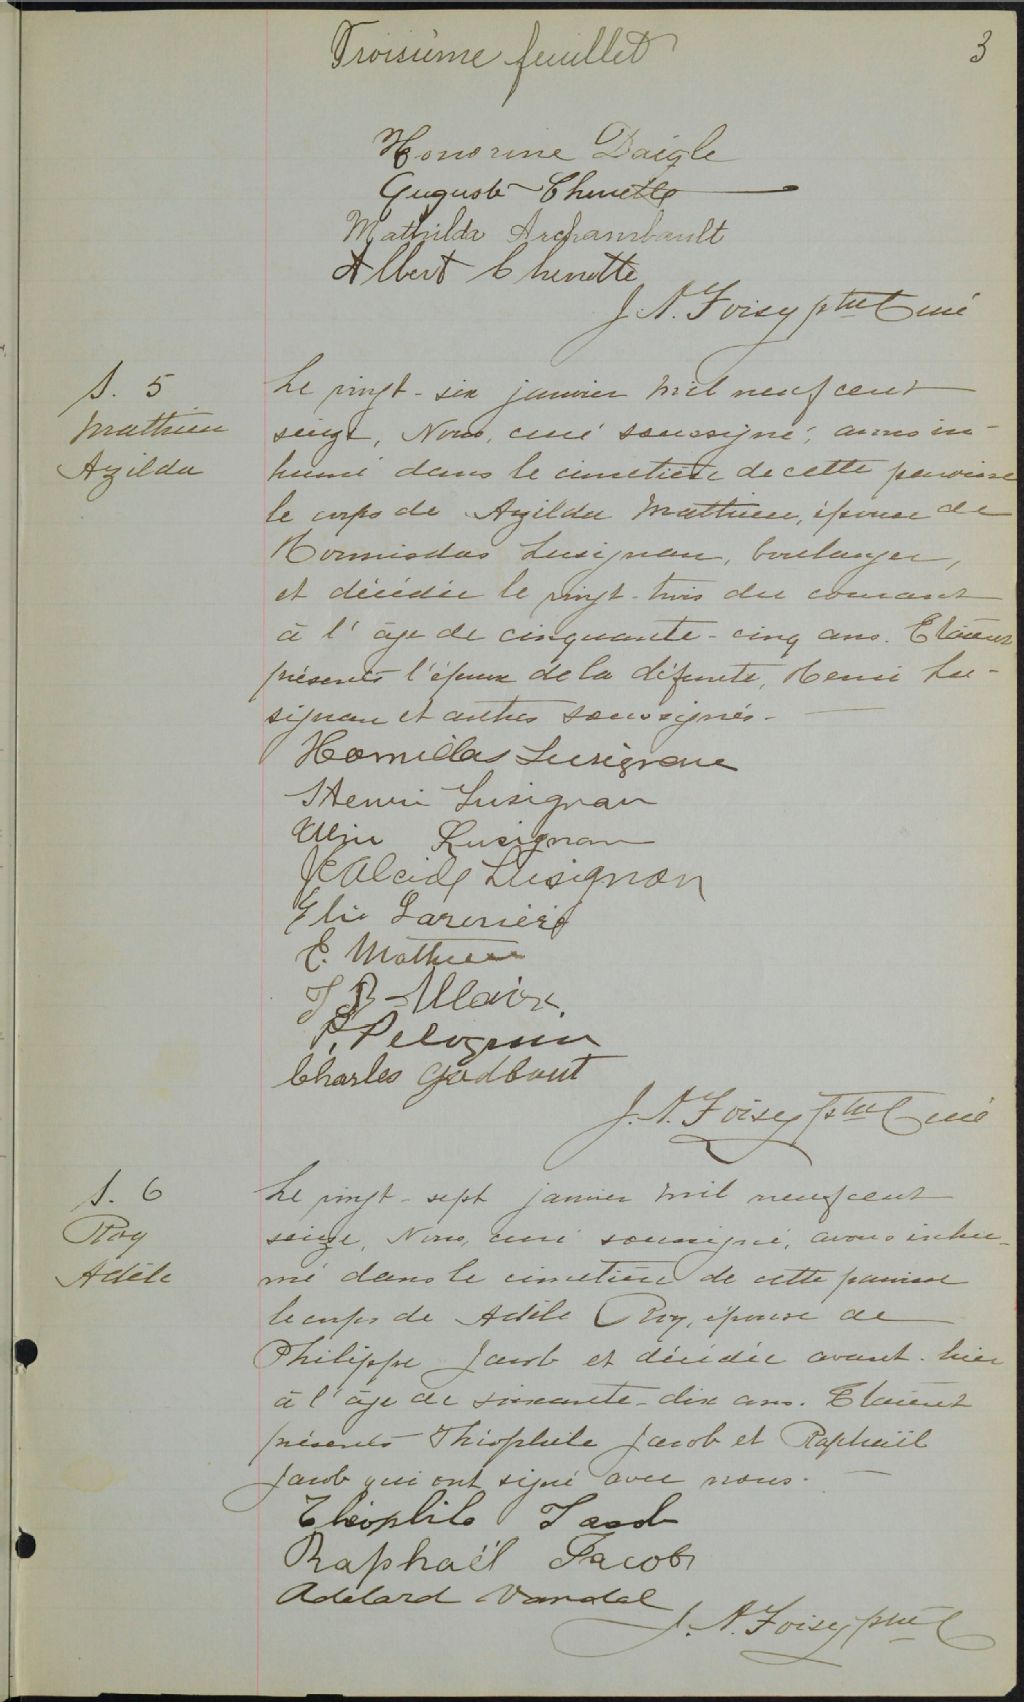 Troisième feuillet
3
Honorine Daigle
Auguste Chenette
Mathilda Archambault
Albert Chenette
J. A. Foisy ptre Curé
S. 5
Mathieu
Azilda
Le vingt-six janvier mil neuf cent
seize, Nous, curé soussigné, avons in-
humé dans le cimetière de cette paroisse
le corps de Azilda Mathieu, épouse de
Hormisdas Lusignan, boulanger,
et décédée le vingt-trois du courant
à l'âge de cinquante-cinq ans. Etaient
présents l'époux de la défunte, Henri Lu-
signan et autres soussignés.
Hormidas Lusignan
Henri Lusignan
Lusignan
J. Alcide Lusignan
Elie Larivière
E. Mathieu
J B Allaire
P. Peloquin
Charles Godbout
J. A. Foisy ptre Curé
S. 6
Roy
Adèle
Le vingt-sept janvier mil neuf cent
seize, Nous, curé soussigné, avons inhu-
mé dans le cimetière de cette paroisse
le corps de Adèle Roy, épouse de
Philippe Jacob et décédée avant-hier
à l'âge de soixante-dix ans. Etaient
présents Théophile Jacob et Raphaël
Jacob qui ont signé avec nous.
Théophile Jacob
Raphaël Jacob
Adelard Vandal
J. A. Foisy ptre C